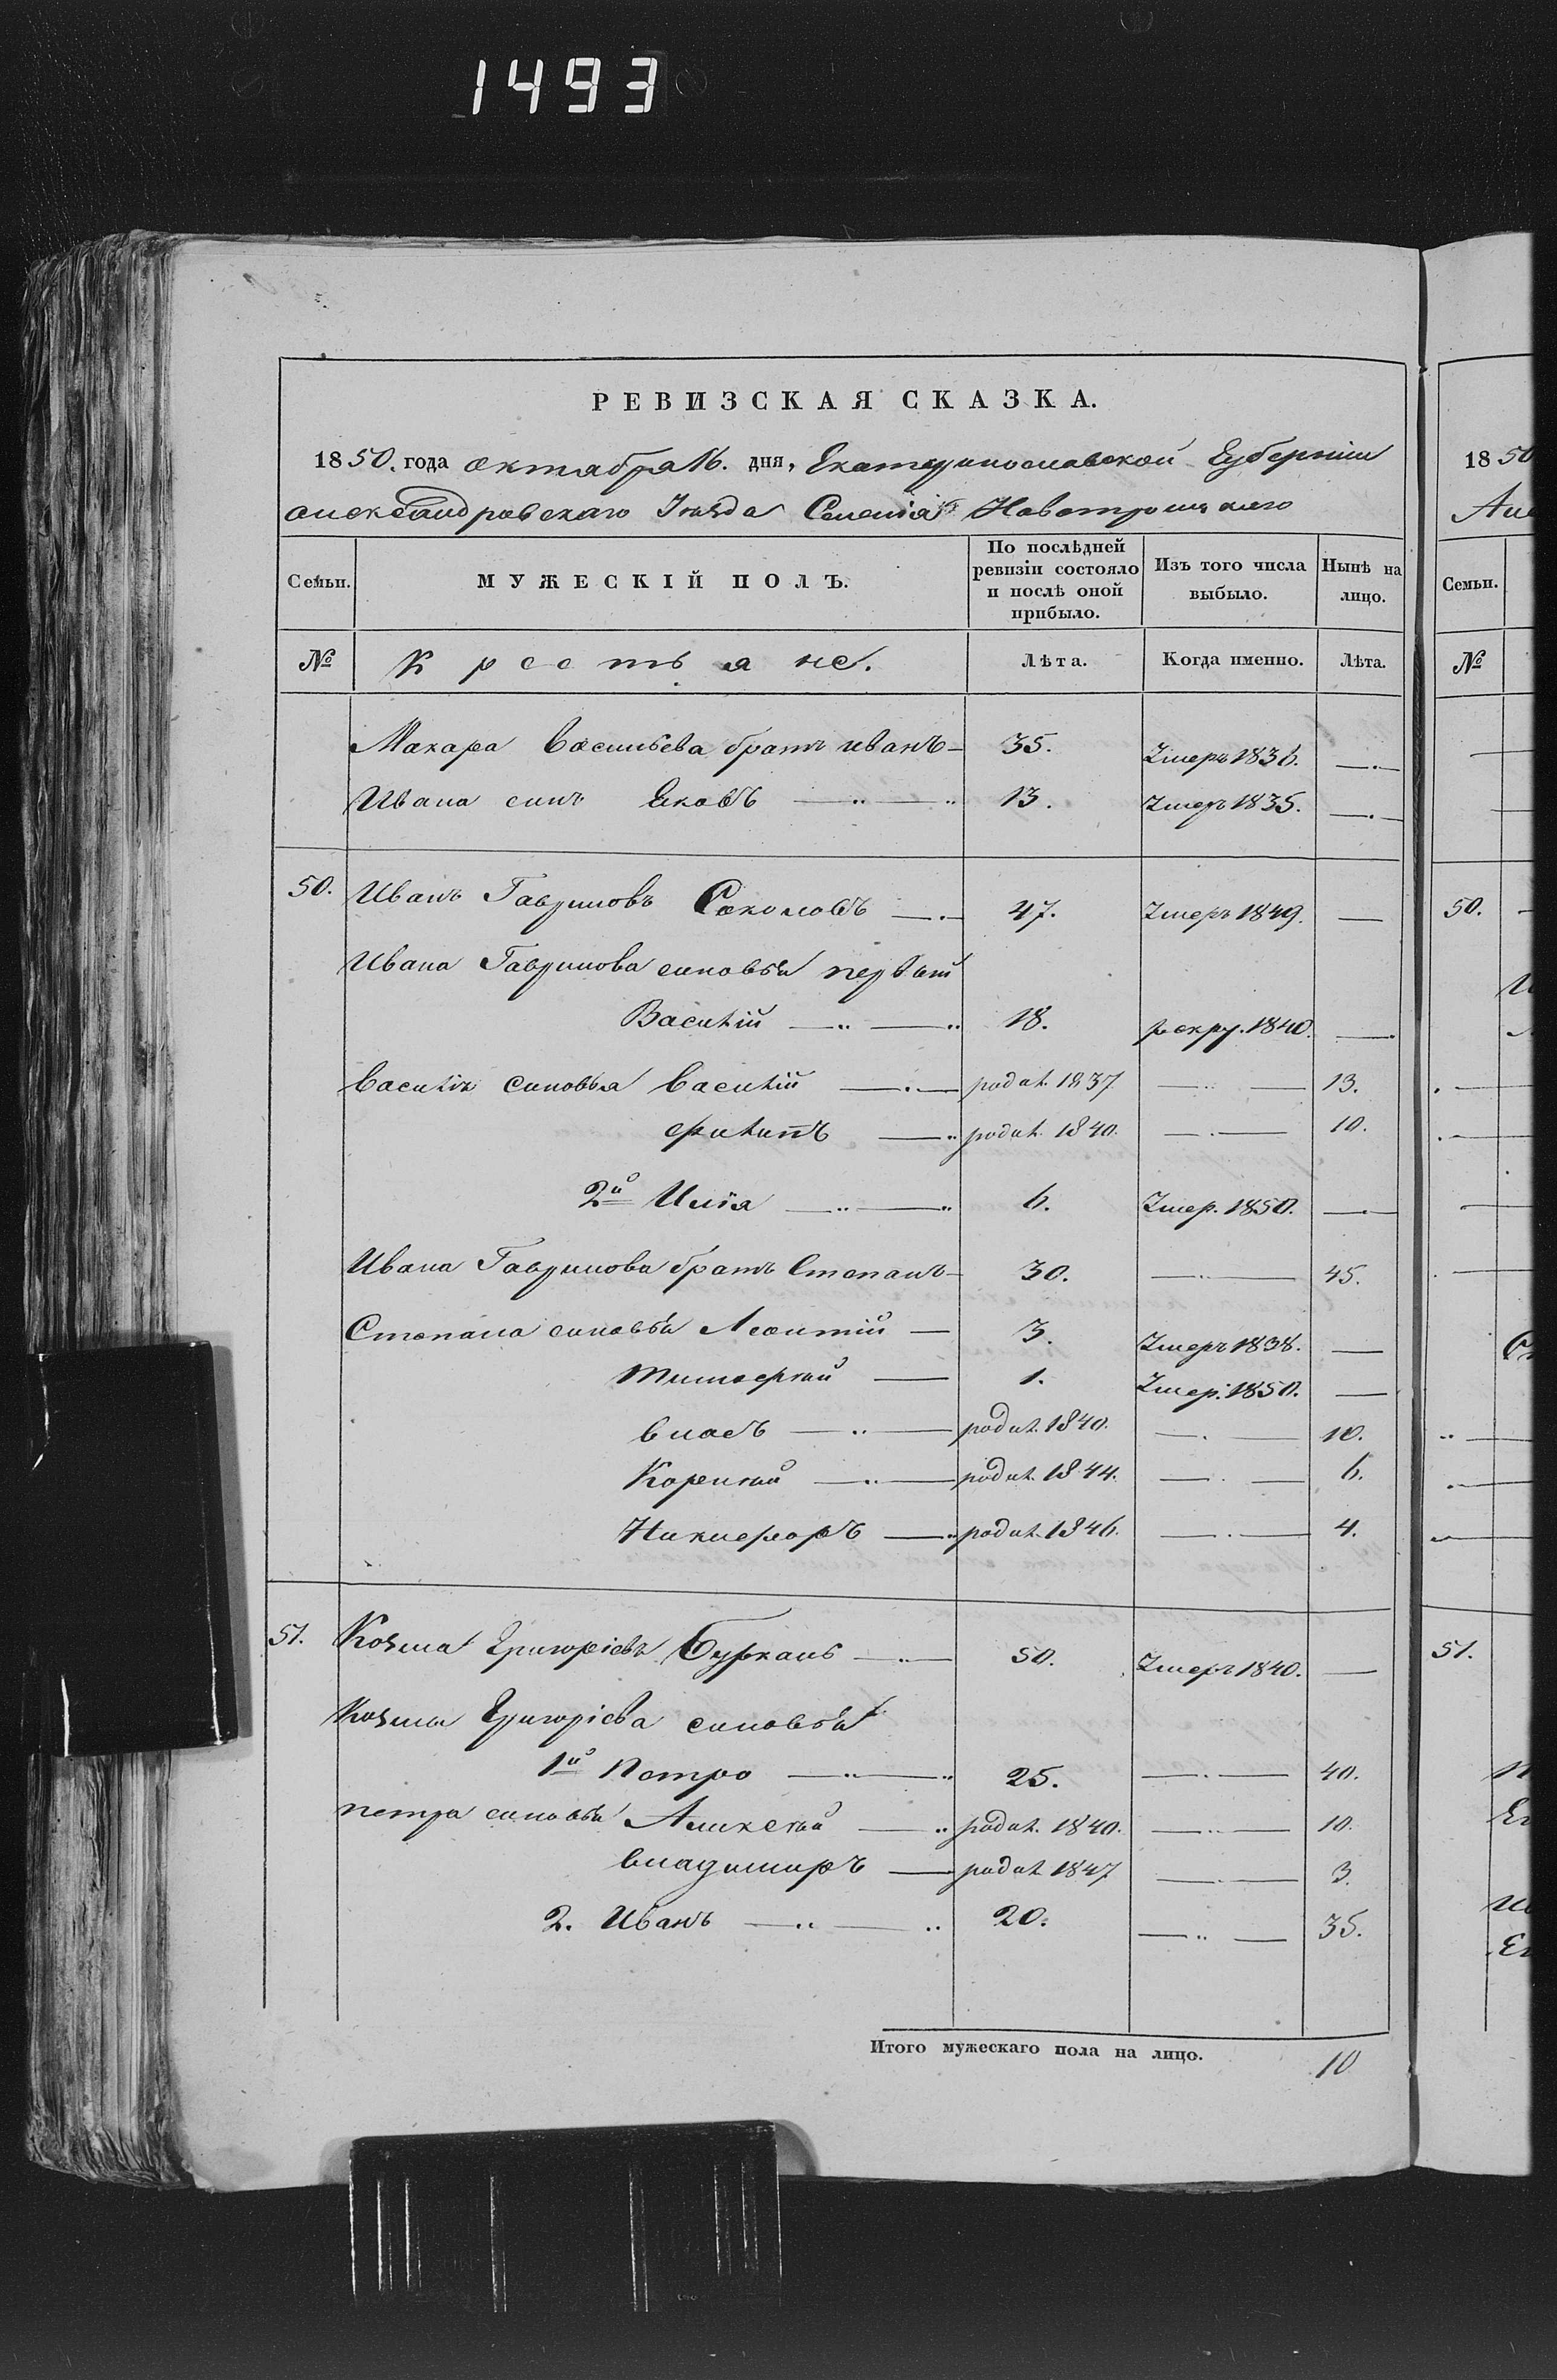 1493
РЕВИЗСКАЯ СКАЗКА.
1850. года октября 16. дня, Екатеринославской Губерніи
александровскаго Уезда Селенія Новотроицкаго
Семьи. МУЖЕСКІЙ ПОЛЪ. По послѣдней ревизіи состояло и послѣ оной прибыло. Изъ того числа выбыло. Нынѣ на лицо.
№ Крестьяне. Лѣта. Когда именно. Лѣта.
Макара Васильева братъ иванъ 35. Умеръ 1836. —
Ивана синъ Яковъ 13. Умеръ 1835. —
50. Иванъ Гавриловъ Соколовъ 47. Умеръ 1849. —
Ивана Гаврилова синовья первый
Василій 18. рекру. 1840. —
Василія синовья Василій родил. 1837 — 13.
филипъ родил. 1840. — 10.
2й Илія 6. Умер. 1850. —
Ивана Гаврилова братъ Степанъ 30. — 45.
Степана синовья Леонтій 3. Умеръ 1838. —
тимофкий 1. Умер. 1850. —
власъ родил. 1840. — 10.
Корникий родил. 1844. — 6.
Никифоръ родил. 1846. — 4.
51. Козма Григоріевъ Бурканъ 50. Умеръ 1840. —
Козмы Григоріева синовья
1й Петро 25. — 40.
петра синовья Аликсий родил. 1840. — 10.
владимиръ родил. 1847 — 3.
2. Иванъ 20. — 35.
Итого мужескаго пола на лицо. 10
1850
Семьи.
№
50.
51.